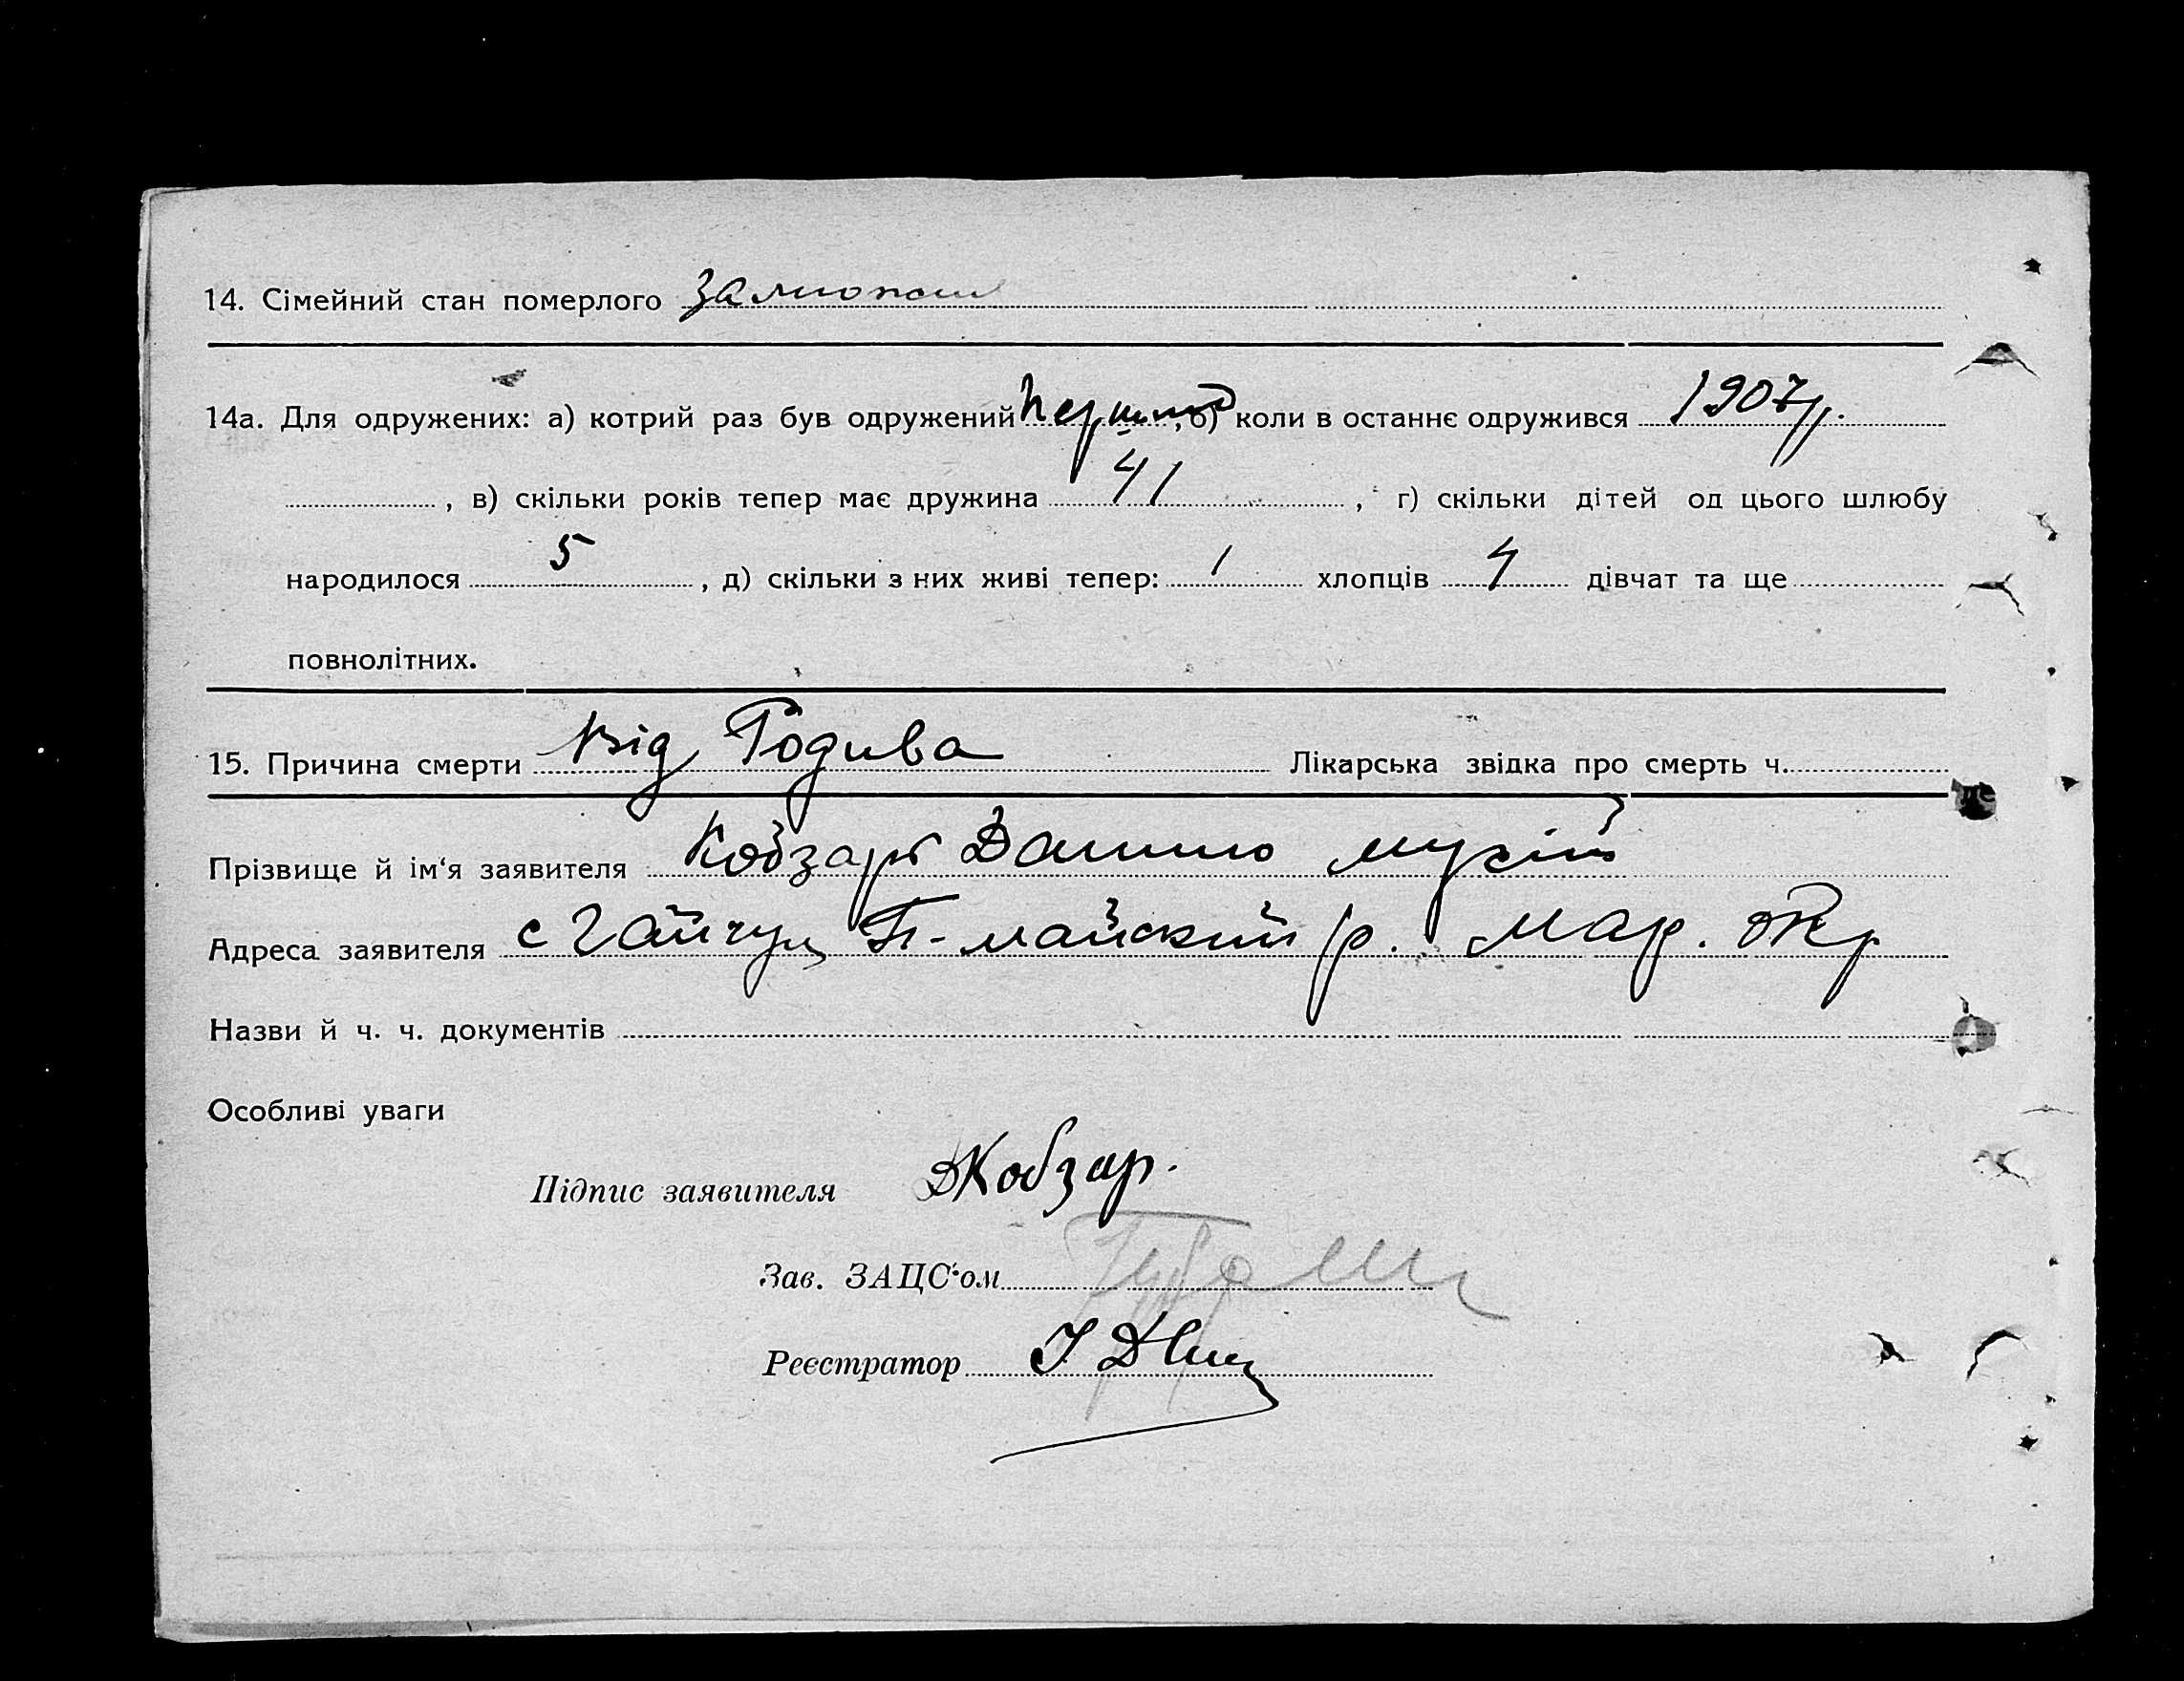 14. Сімейний стан померлого замюжни
14а. Для одружених: а) котрий раз був одружений перший, б) коли в останнє одружився 1907 р.
, в) скільки років тепер має дружина 41, г) скільки дітей од цього шлюбу
народилося 5, д) скільки з них живі тепер: 1 хлопців 4 дівчат та ще
повнолітних.
15. Причина смерти від Родива Лікарська звідка про смерть ч.
Прізвище й ім‘я заявителя Кобзарь Данило
Адреса заявителя с Гайчул П-майский р. Мар. окр
Назви й ч. ч. документів
Особливі уваги
Підпис заявителя ДКобзар.
Зав. ЗАЦС‘ом
Реєстратор